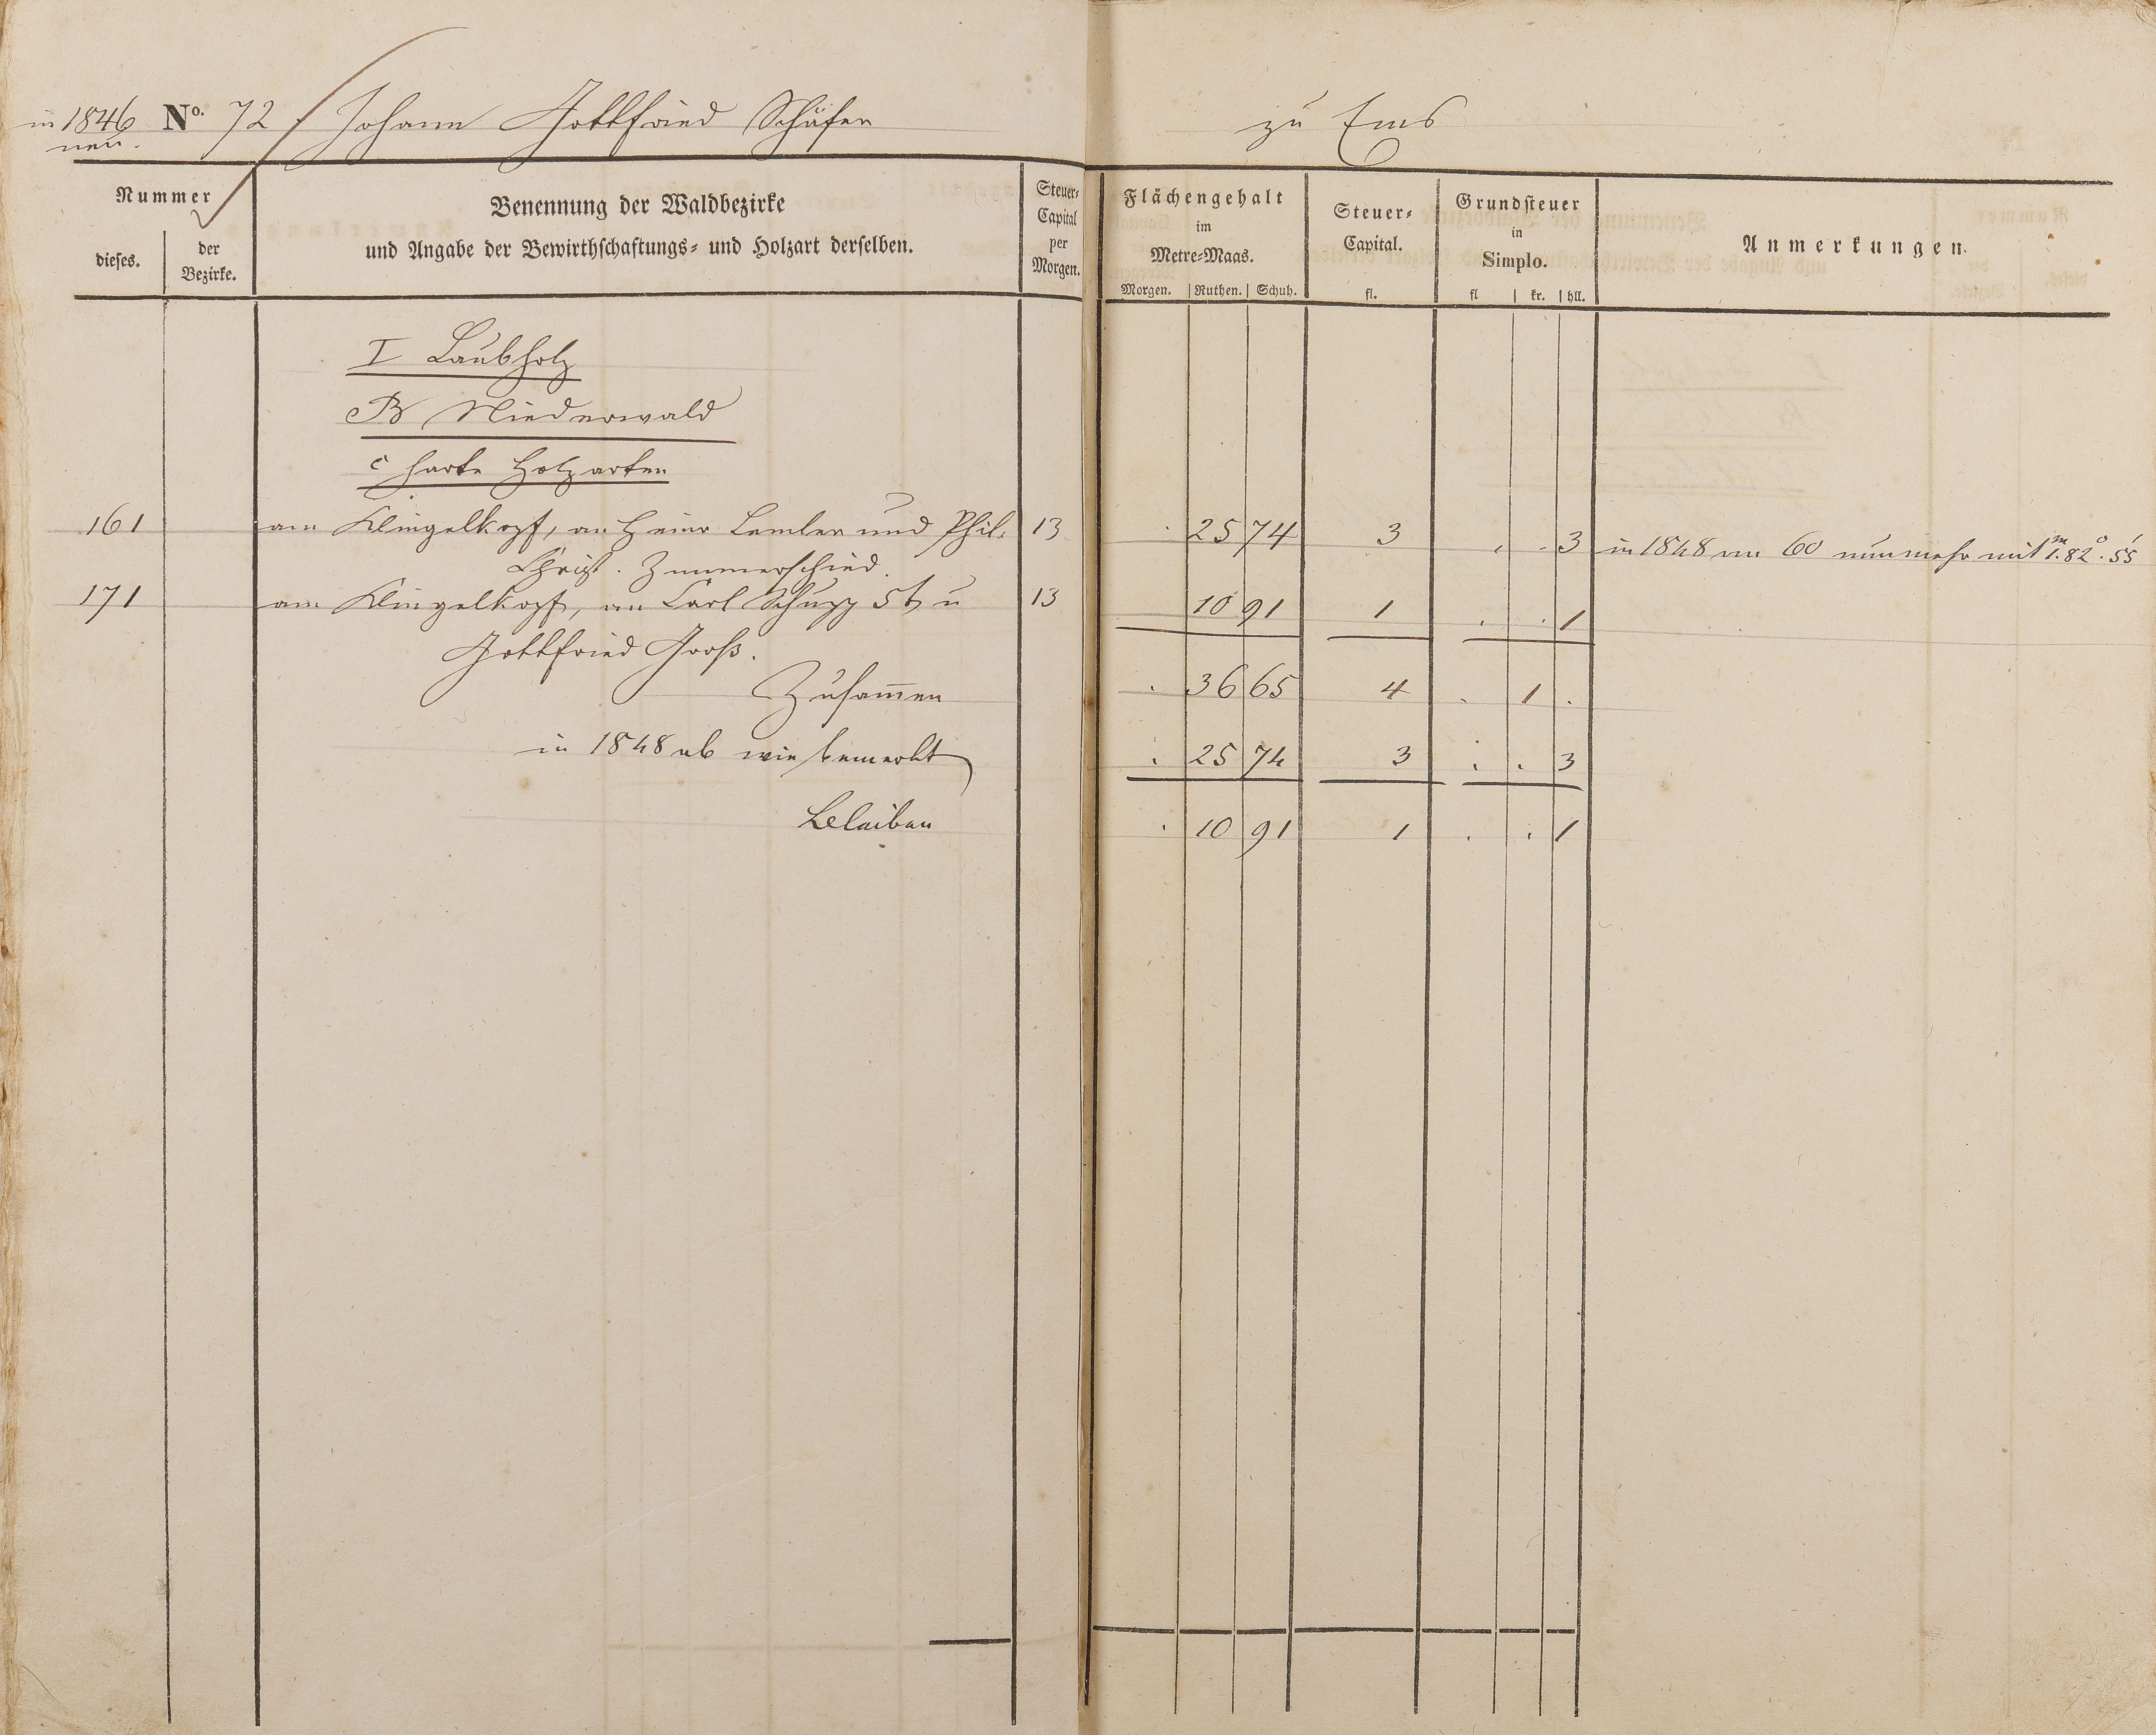 in 1846 No. 72. Johann Gottfried Schäfer zu Ems
neu.
Nummer
dieses. der Bezirke.
Benennung der Waldbezirke
und Angabe der Bewirthschaftungs- und Holzart derselben.
Steuer-
Capital
per
Morgen.
Flächengehalt
im
Metre-Maas.
Morgen. Ruthen. Schuh.
Steuer-
Capital.
fl.
Grundsteuer
in
Simplo.
fl kr. hll.
Anmerkungen.
I Laubholz
B Niederwald
c harte Holzarten
161 am Klingelkopf, an Heinr Lemler und Phil. 13 . 25 74 3 . . 3 in 1848 an 60 nunmehr mit 1.m 82.° 55'
Christ. Zimmerschied.
171 am Klingelkopf, an Carl Schupp 5t u 13 10 91 1 . . 1
Gottfried Groß.
Zusam̅en . 36 65 4 . 1 .
in 1848 ab wie bemerkt . 25 74 3 . . 3
Bleiben . 10 91 1 . . 1